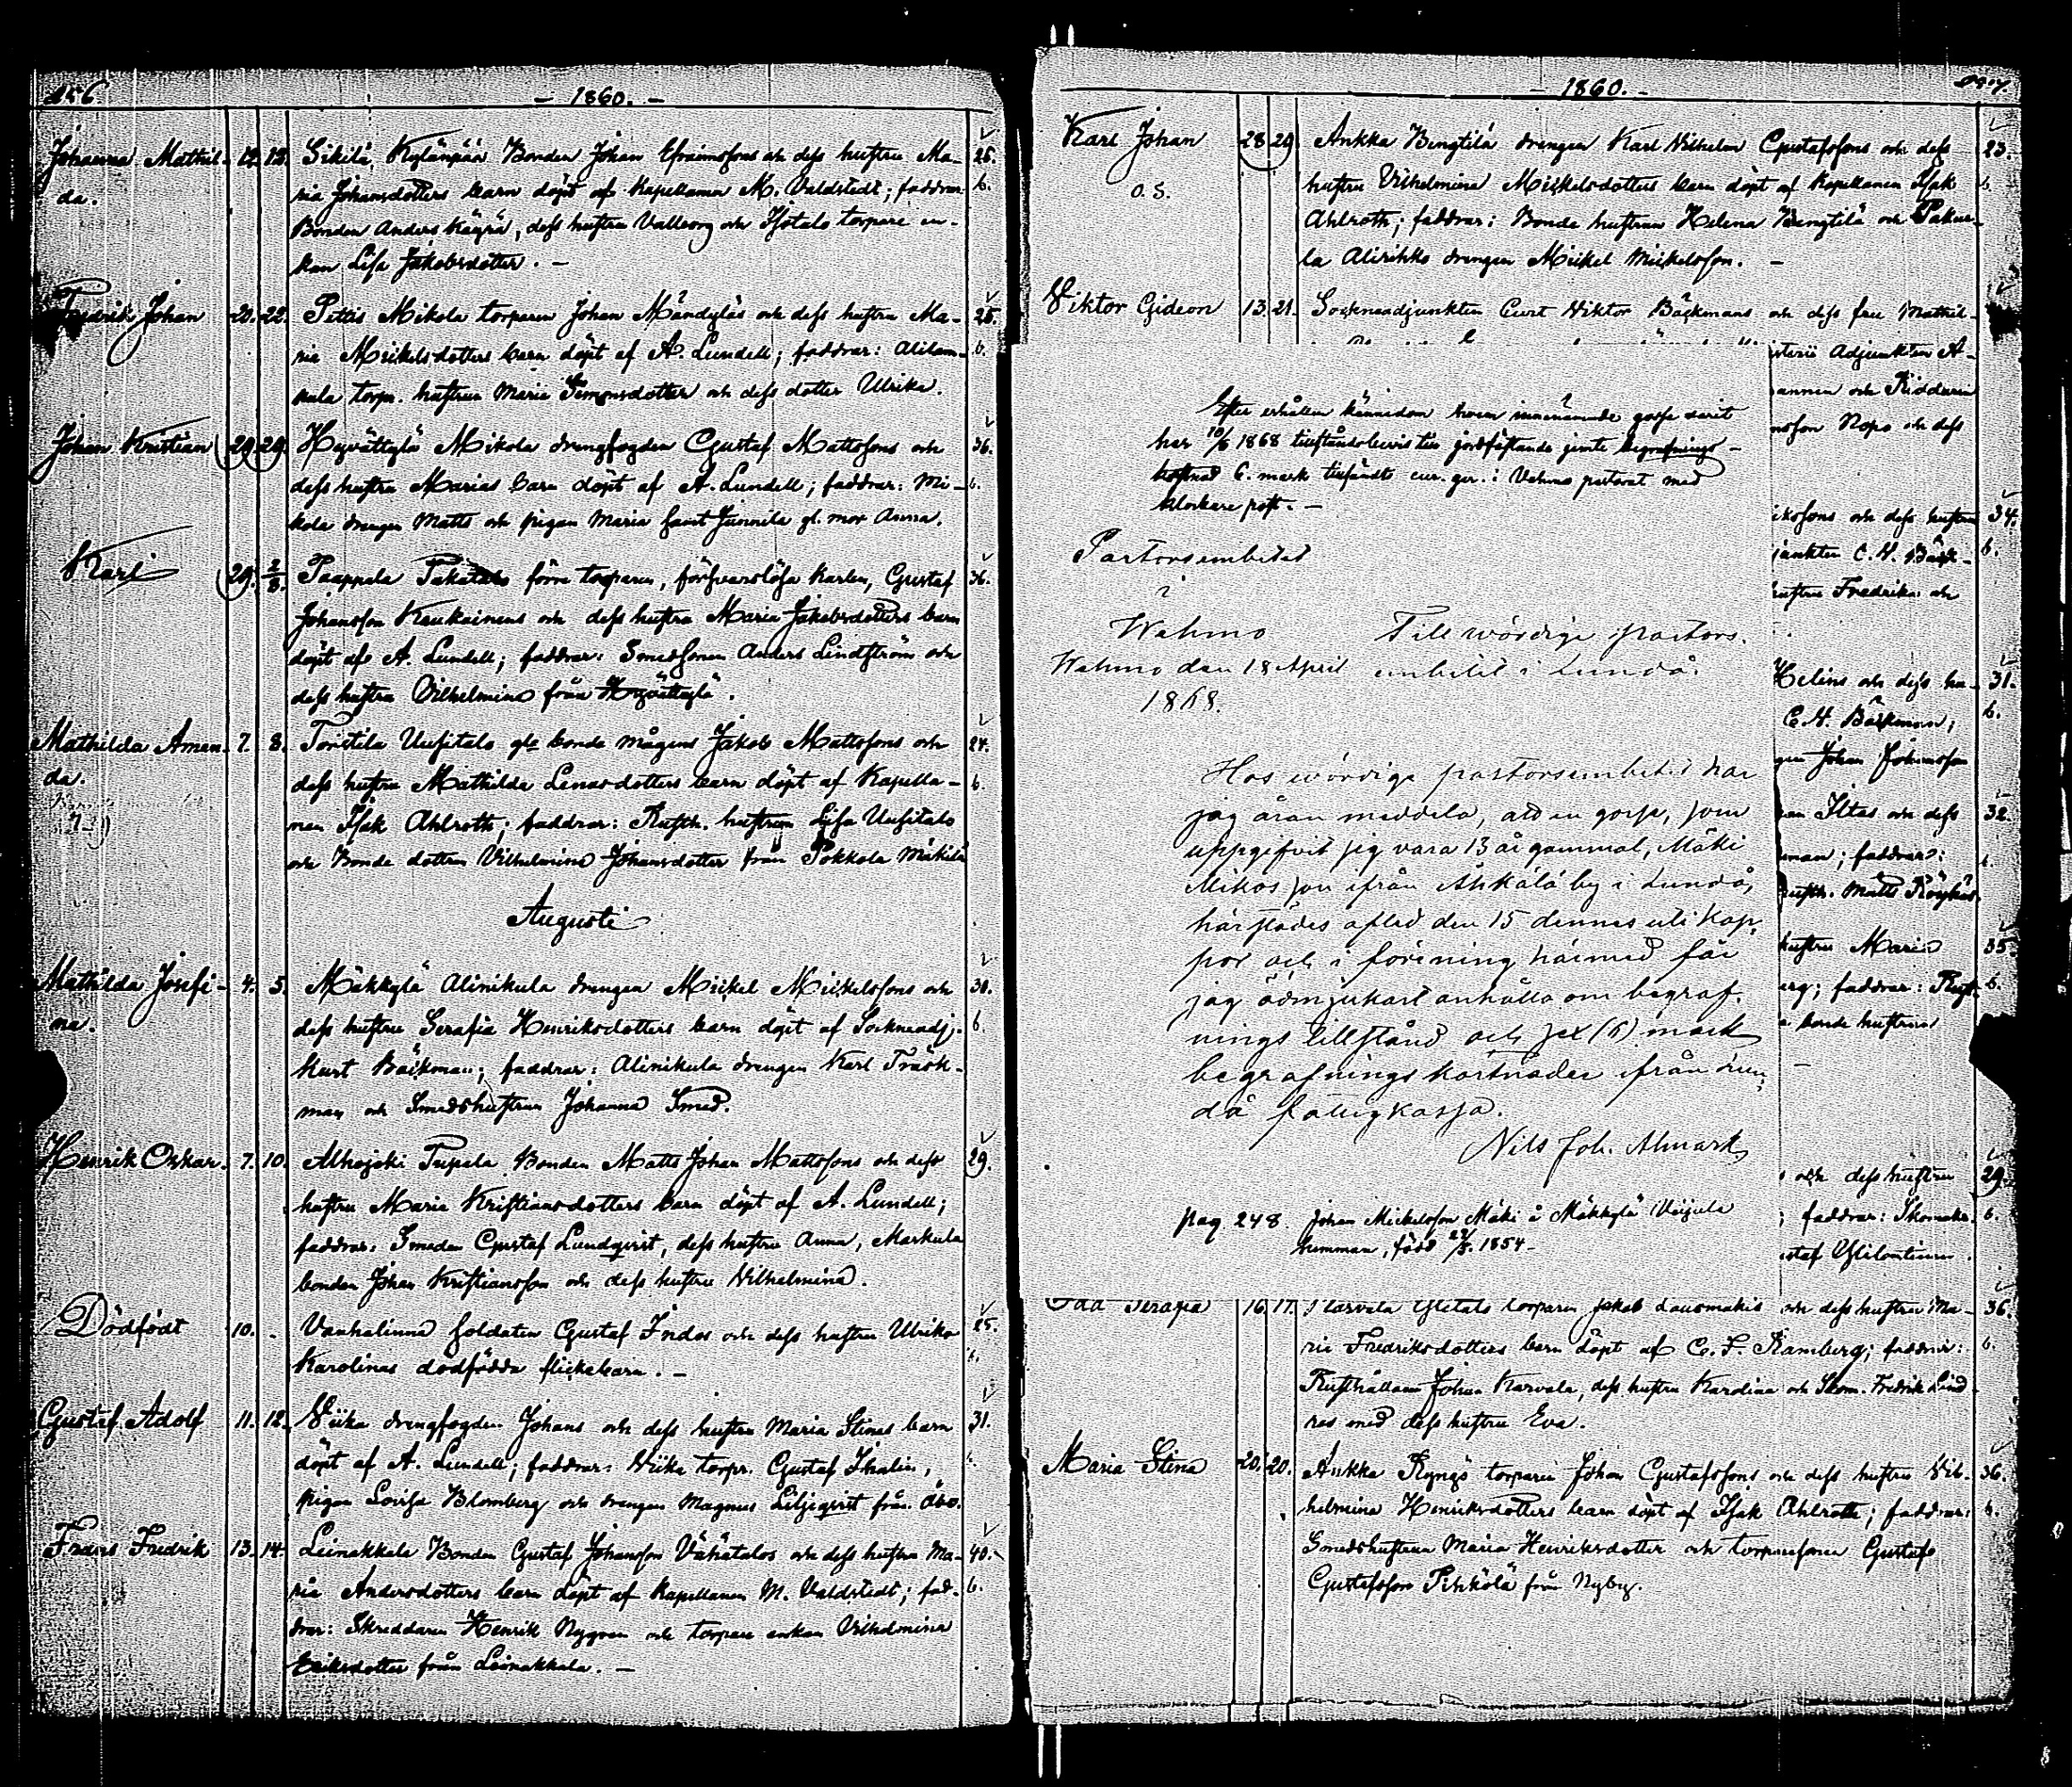 456
- 1860. -
Johanna Mathil- 12. 15. Sikilä, Kylänpää Bonden Johan Efraimssons och dess hustru Ma- 25.
da. ria Johansdotters barn döpt af Kapellanen M. Valdstedt; faddrar: 6.
Bonden Anders Käyrä, dess hustru Valborg och Isotalo torpare en-
kan Lisa Jakobsdotter. -
Fredrik Johan 20. 22. Pettis Mikola torparen Johan Mändyläs och dess hustru Ma- 25.
ria Mickelsdotters barn döpt af A. Lundell; faddrar: Alilem- 6.
kula torpr. hustrun Maria Simonsdotter och dess dotter Ulrika.
Johan Kristian 29. 29. Hyvättylä Mikola drengfogden Gustaf Mattssons och 36.
dess hustru Marias barn döpt af A. Lundell; faddrar: Mi- 6.
kola drengen Matts och pigan Maria samt Junnila gl. mor Anna.
Karl 29. 2/8. Paappala Pakatalo förre torparen, försvarslösa karlen, Gustaf 36.
Johansson Kaukainens och dess hustru Maria Jakobsdotters barn
döpt af A. Lundell; faddrar: Smedsonen Anders Lindström och
dess hustru Vilhelmina från Hyvättylä.
Mathilda Aman- 7. 8. Toristila Uusitalo gla bonde mågens Jakob Mattssons och 24.
da. dess hustru Mathilda Lenasdotters barn döpt af Kapella- 6.
nen Isak Ahlroth; faddrar: Rusth. hustrun Lisa Uusitalo
och Bonde dottren Vilhelmina Johansdotter från Pokkola Mäkilä
Augusti
Mathilda Josefi- 4. 5. Mäkkylä Alinikula drengen Mickel Mickelssons och 30.
na. dess hustru Serafia Henriksdotters barn döpt af Sockneadj. 6.
Kurt Bäckman; faddrar: Alinikula drengen Karl Träsk-
man och Smedshustrun Johanna Smed.
Henrik Oskar. 7. 10. Alhojoki Tupala Bonden Matts Johan Mattssons och dess 29.
hustru Maria Kristiansdotters barn döpt af A. Lundell;
faddrar: Smeden Gustaf Lundqvist, dess hustru Anna, Markula
bonden Johan Kristiansson och dess hustru Vilhelmina.
Dödfödt 10. - Vanhalinna soldaten Gustaf Indos och dess hustru Ulrika 25.
Karolinas dödfödda flickebarn. - 6.
Gustaf Adolf 11. 12. Viika drengfogden Johans och dess hustru Maria Stinas barn 31.
döpt af A. Lundell; faddrar: Viika torpr. Gustaf Thalin,
pigan Lovisa Blomberg och drengen Magnus Liljeqvist från Åbo.
Frans Fredrik 13. 14. Leinakkala Bonden Gustaf Johansson Vähätalos och dess hustru Ma- 40.
ria Andersdotters barn döpt af Kapellanen M. Valdstedt; fad- 6.
drar: Skreddaren Henrik Nygren och torpare enkan Vilhelmina
Eriksdotter från Leinakkala. -
- 1860. -
Karl Johan 28 29 Ankka Bengtilä drengen Karl Vilhelm Gustafssons och dess 23.
O. S. hustru Vilhelmina Mickelsdotters barn döpt af Kapellanen Isak 6.
Ahlroth; faddrar: Bonde hustrun Helena Bengtilä och Pakur-
la Alirikko drengen Mickel Mickelsson. -
Viktor Gideon 13. 21. Sockneadjunkten Curt Viktor Bäckmans och dess fru Mathil-
Adjunkten A-
annen och Riddaren
nsson Ropo och dess
Efter erhållen kännedom hvem innenämnde gosse varit
har 10/6 1868 tillståndsbevis till jordfästande jemte begrafnings-
kostnad 6. mark tillsändts cur. ger. i Vehmo pastorat med
klockare post. -
Pastorsembetet
i
Wehmo Till wördige pastors-
Wehmo den 18 April embetet i Lundå.
1868.
Hos wördige pastorsembetet har
jag äran meddela, att en gosse, som
uppgifvit sig vara 13 år gammal, Mäki
Mikos son ifrån Ahkälä by i Lundå,
härstädes afled den 15 dennes uti kop-
por och i förening härmed får
jag ödmjukast anhålla om begraf-
nings tillstånd och sex (6) mark
begrafnings kostnader ifrån Lun-
då fattigkassa.
Nils Joh. Almark
pag. 248. Johan Mickelsson Mäki å Mäkkylä Uusjula
hemman, född 24/5. 1854.-
ikssons och dess hustru 34.
junkten C. V. Bäck- 6.
hustru Fredrika och
Helins och dess hu- 31.
C. V. Bäckman; 6.
Johan Johansson
Iltas och dess 32.
man; faddrar: 6.
Rusth. Matts Röykäs.
hustru Maria 35.
erg; faddrar: Rust- 6.
bonde hustrun
och dess hustru 29.
; faddrar: Skomak. 6.
staf Ylilontinen.
Ida Serafia 16. 17. Karvala Ylitalo torparen Jakob Lausmäkis och dess hustru Ma- 36.
ria Fredriksdotters barn döpt af C. F. Ramberg; faddrar: 6.
Rusthållaren Johan Karvala, dess hustru Karolina och Skom. Fredrik Lind-
ros med dess hustru Eva.
Maria Stina 20. 20. Ankka Ryngö torparen Johan Gustafssons och dess hustru Vil- 36.
helmina Henriksdotters barn döpt af Isak Ahlroth; faddrar: 6.
Smedshustrun Maria Henriksdotter och torparesonen Gustaf
Gustafsson Pihkölä från Nyby.